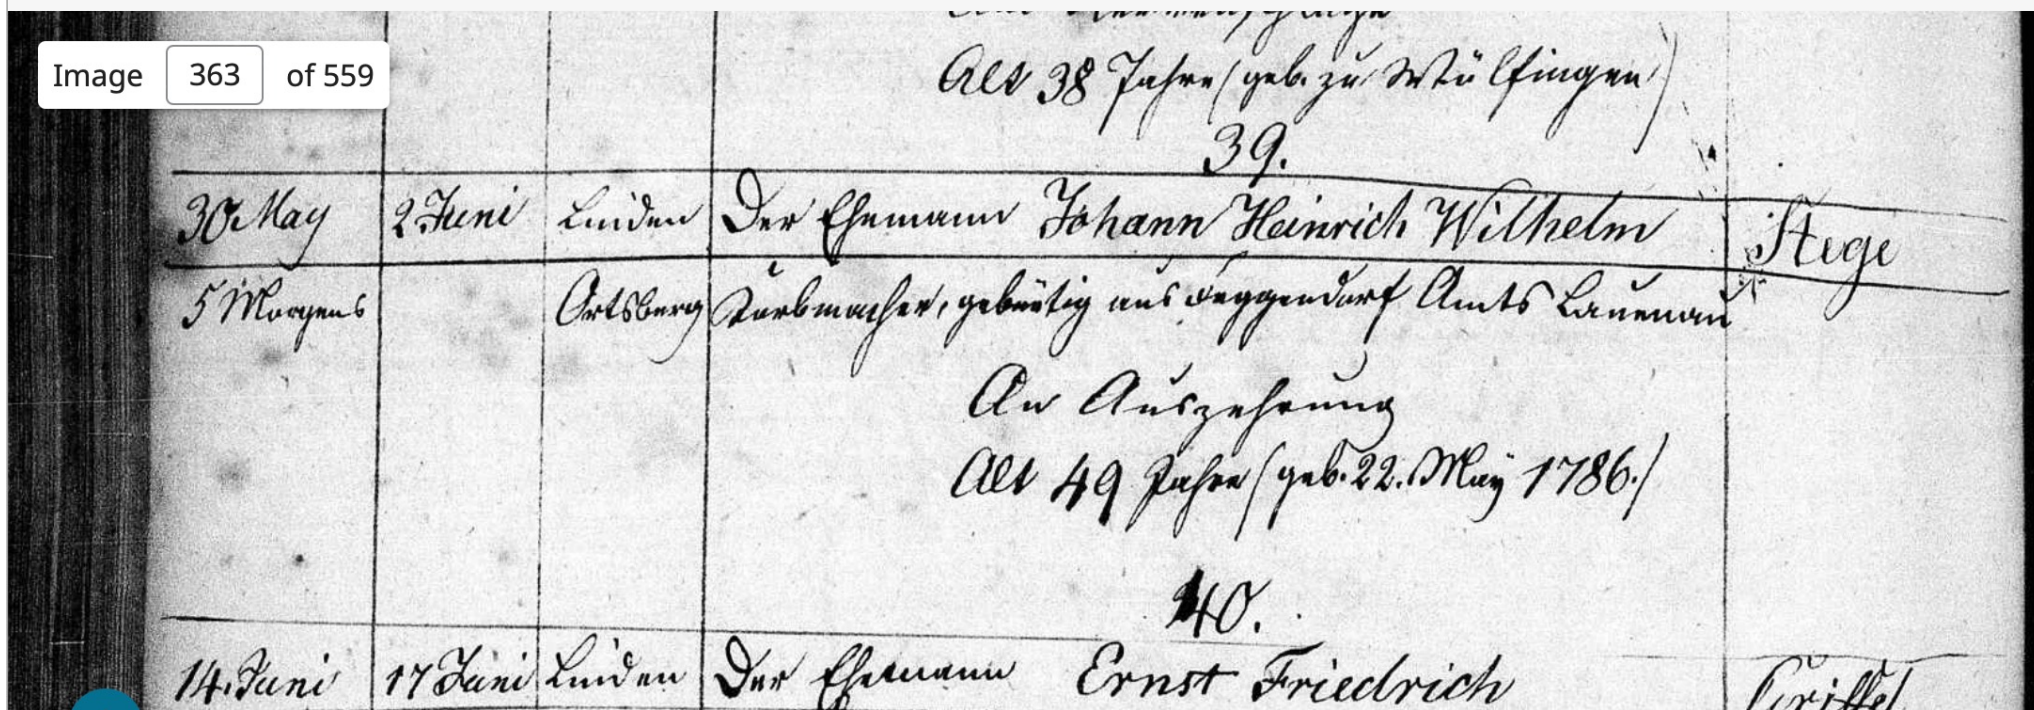 Image 363 of 559
Alt 38 Jahre (geb. zu Wülfingen)
39.
30 May 2 Juni Linden Der Ehemann Johann Heinrich Wilhelm Stege
5 Morgens Ortsberg Korbmacher, gebürtig aus Feggendorf Amts Lauenau
An Auszehrung
Alt 49 Jahre (geb. 22. May 1786.)
40.
14. Juni 17 Juni Linden Der Ehemann Ernst Friedrich